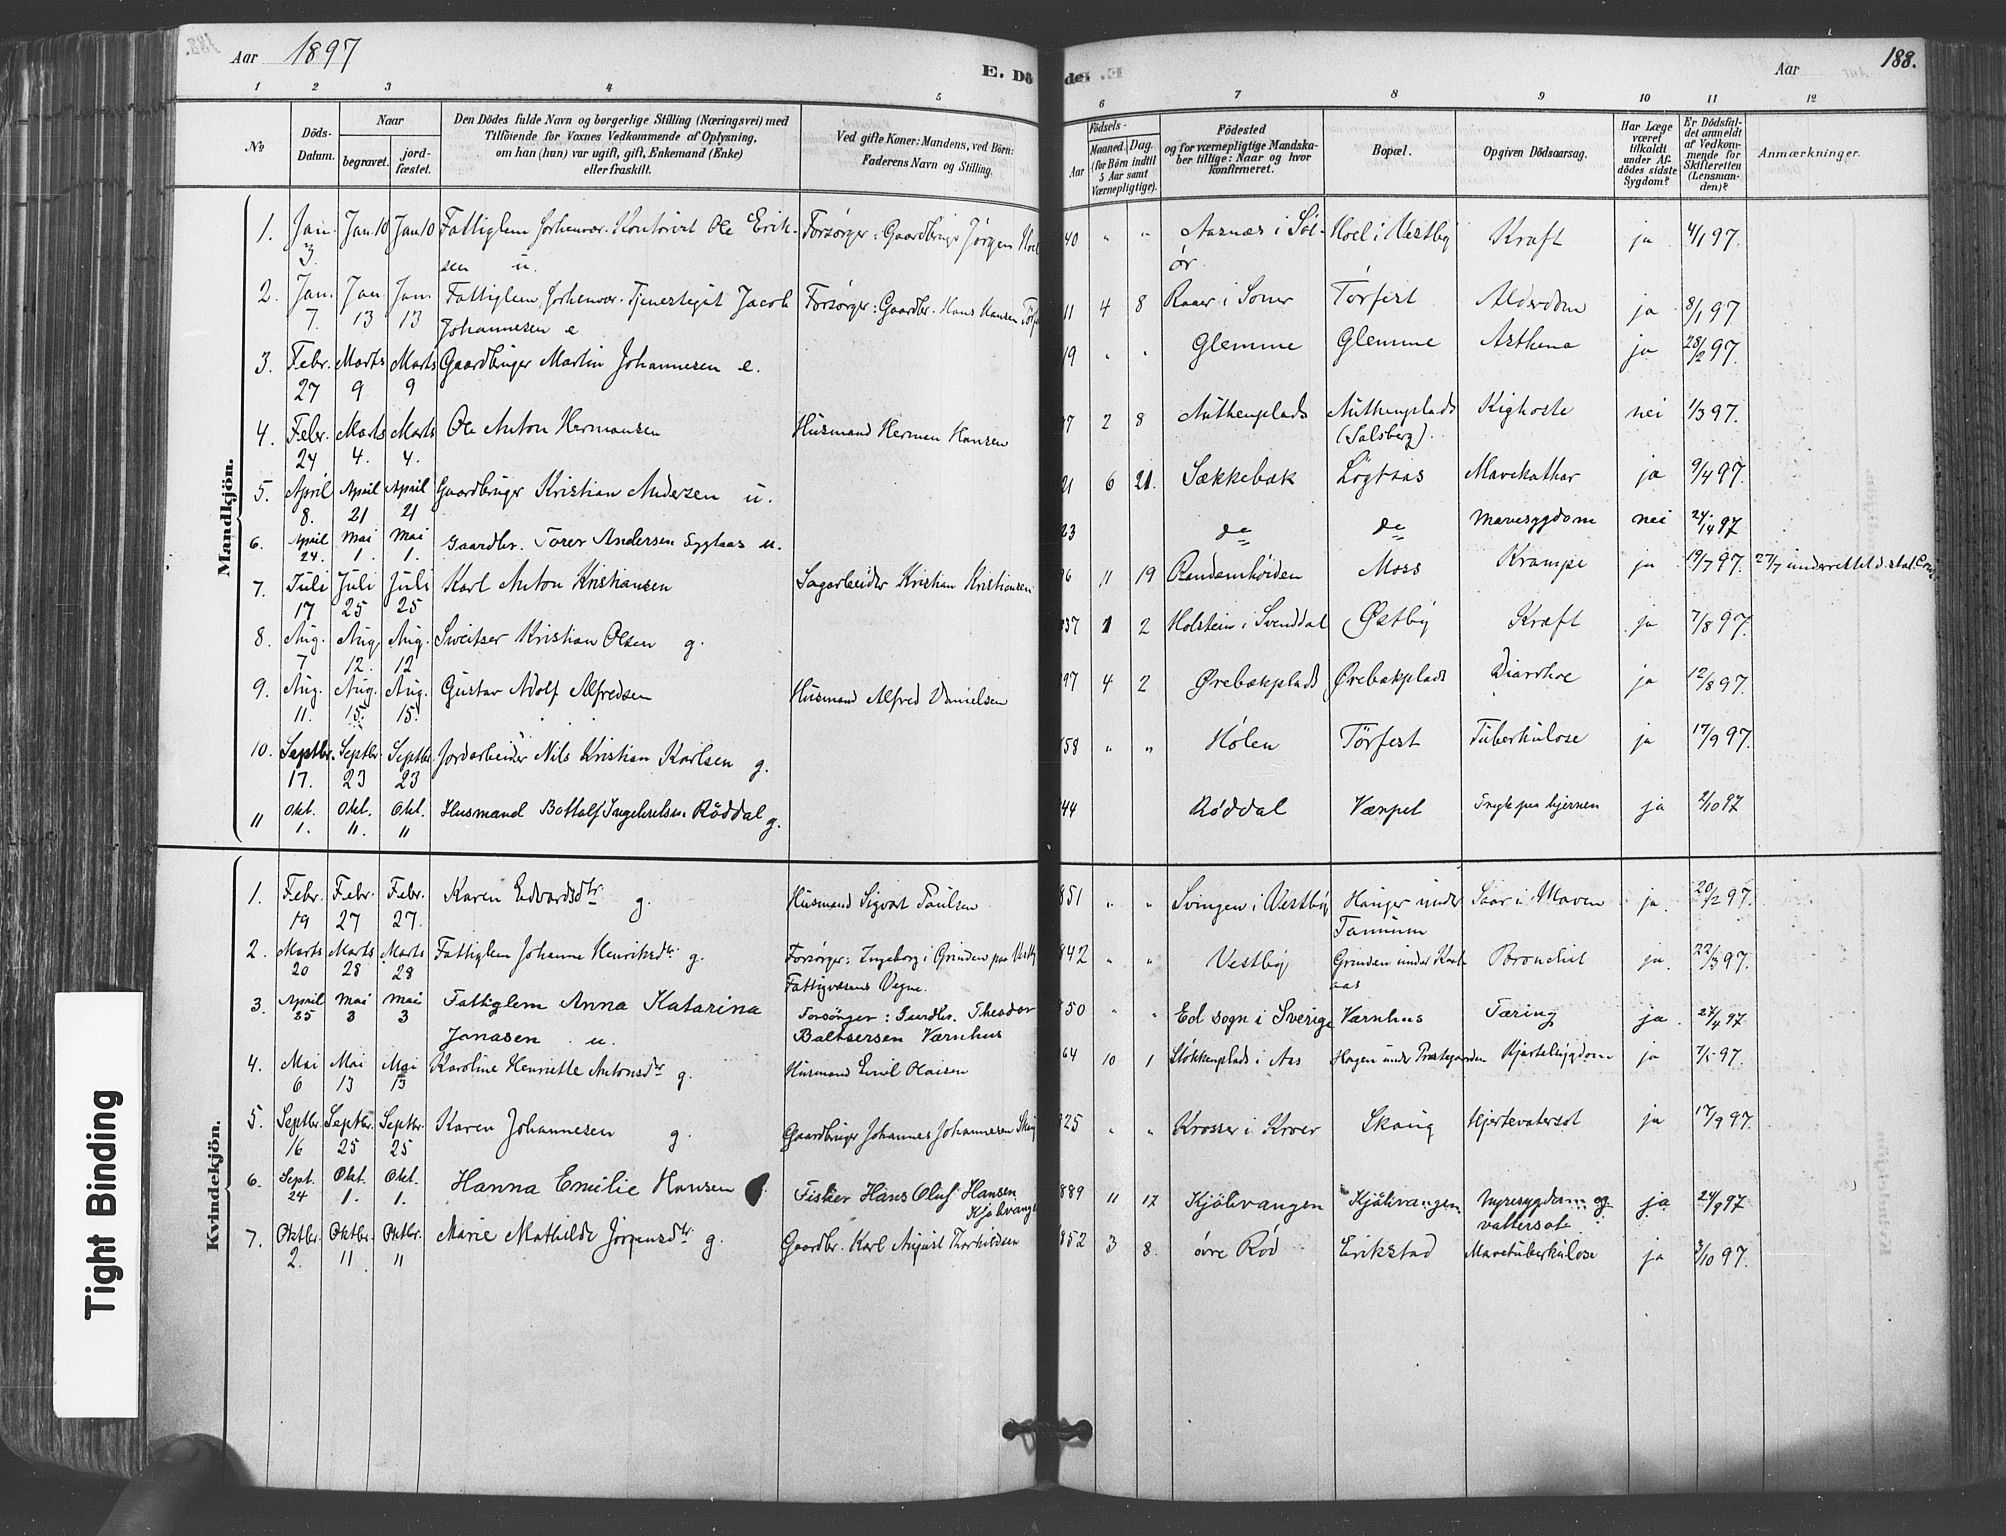 188.
Aar 1897
E. Dö
de. E.
Aar
188.
1 2 3 4 5 6 7 8 9 10 11 12
No
Döds-
Datum.
Naar
begravet.
jord-
fæstet.
Den Dödes fulde Navn og borgerlige Stilling (Næringsvei) med
Tilföiende for Voxnes Vedkommende af Oplysning,
om han (hun) var ugift, gift, Enkemand (Enke)
eller fraskilt.
Ved gifte Koner: Mandens, ved Börn:
Faderens Navn og Stilling.
Födsels-
Aar
Maaned.
Dag.
(for Börn indtil
5 Aar samt
Værnepligtige).
Födested
og for værnepligtige Mandska-
ber tillige: Naar og hvor
konfirmeret.
Bopæl.
Opgiven Dödsaarsag.
Har Læge
været
tilkaldt
under Af-
dödes sidste
Sygdom?
Er Dödsfal-
det anmeldt
af Vedkom-
mende for
Skifteretten
(Lensman-
den)?
Anmærkninger.
Mandkjön.
1. Jan. Jan 10 Jan 10 Fattiglem forhenvær. Kontorist Ole Erik- Forsørger: Gaardbruger Jørgen Hoel 40 " " Aasnæs i Sol- Hoel i Vestby Kræft ja 4/1 97.
3. sen u. ør.
2. Jan. Jan. Jan. Fattiglem forhenvær. Tjenestegut Jacob Forsørger: Gaardbr. Hans Hansen Tørf 11 4 8 Raaer i Soner Tørfest Alderdom ja 8/1 97
7. 13 13 Johannesen e
3. Febr. Marts Marts Gaardbruger Martin Johannesen e. 19 " " Glemme Glemme Asthma ja 28/2 97.
27 9 9
4. Febr. Marts Marts Ole Anton Hermansen Husmand Herman Hansen 97 2 8 Authenplads Authenplads Kighoste nei 1/3 97.
24 4. 4. (Solsberg).
5. April April April Gaardbruger Kristian Andersen u. 21 6 21. Sækkebæk Løgtsaas Mavekathar ja 9/4 97.
8. 21 21
6. April Mai Mai Gaardbr. Torer Andersen Eggtaas u. 23 do do Mavesygdom nei 24/4 97
24. 1. 1.
7. Juli Juli Juli Karl Anton Kristiansen Sagarbeider Kristian Kristiansen 96 11 19 Randemhøiden Moss Krampe ja 19/7 97. 27/7 underrettet
17 25 25
8. Aug. Aug Aug. Sweitser Kristian Olsen g. 837 1 2 Holstein i Svenddal Østby Kræft ja 7/8 97.
7 12. 12
9. Aug. Aug. Aug. Gustav Adolf Alfredsen Husmand Alfred Danielsen 97 4 2 Ørebækplads Ørebækplads Diarrhoe ja 12/8 97.
11. 15. 15.
10. Septbr. Septbr. Septbr. Jordarbeider Nils Kristian Karlsen g. 58 " " Hølen Tørfest Tuberkulose ja 17/9 97.
17. 23 23
11 Okt. Okt. Okt. Husmand Bottolf Ingebretsen Røddal g. 44 Røddal Værpet Tryk paa hjernen ja 2/10 97
1. 11. 11
Kvindekjön.
1. Febr. Febr. Febr. Karen Edvardsdtr g. Husmand Sigvart Paulsen 851 " " Svingen i Vestby Hanger under Saar i Maven ja. 20/2 97.
19 27 27. Taumum
2. Marts Marts Marts Fattiglem Johanne Henriksdtr. g. Forsørger: Ingeborg i Grinden paa Vestby 842 " " Vestby Grinden under Krab Bronchit ja. 22/3 97.
20 28 28 Fattigvæsens Vegne. aas
3. April Mai Mai Fattiglem Anna Katarina Forsørger: Gaardbr. Theodor 850 " " Ed sogn i Sverige Værnhus Tæring ja. 27/4 97
25 3 3 Jonasen u. Baltsersen Værnhus
4. Mai Mai Mai Karoline Henriette Antonsdtr g. Husmand Emil Olaisen 64 10 1 Støkkenplads i Aas Hagen under Præstegaarden Hjertesygdom ja 7/5 97.
6 13 13
5. Septbr. Septbr. Septbr. Karen Johannesen g. Gaardbruger Johannes Johannesen Skaug 825 " " Krosser i Kroer Skaug Hjertevatersot ja 17/9 97.
16 25 25
6. Sept. Okt. Okt. Hanna Emilie Hansen Fisker Hans Oluf Hansen 889 11 17 Kjølsvangen Kjølsvangen Nyresygdom og ja 24/9 97
24 1. 1. Kjølsvangen vattersot
7. Oktbr. Oktbr. Oktbr. Marie Mathilde Jørgensdtr g. Gaardbr. Karl August Thorkildsen 852 3 8. øvre Rød Erikstad Mavetuberkulose ja 3/10 97.
2. 11 11
Tight Binding